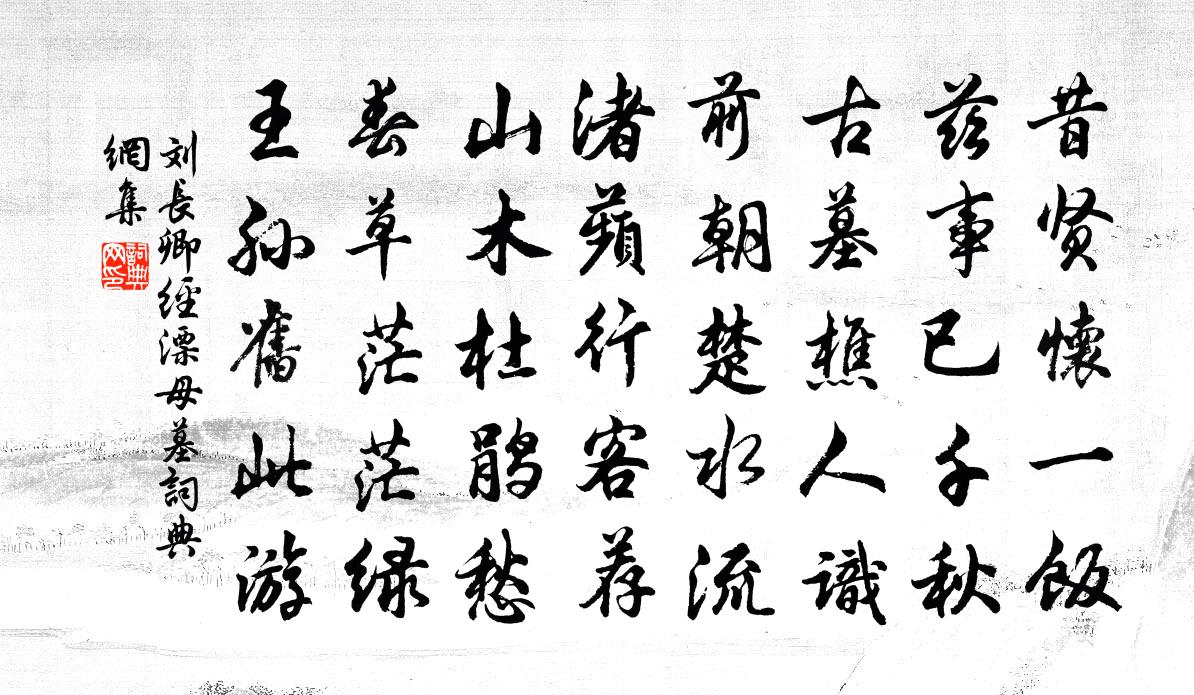 昔贤懷一飯
兹事已千秋
古墓樵人識
前朝楚水流
渚蘋行客荐
山木杜鹃愁
春草茫茫绿
王孙舊此游
刘長卿經漂母墓詞典
網集
詞典
网印